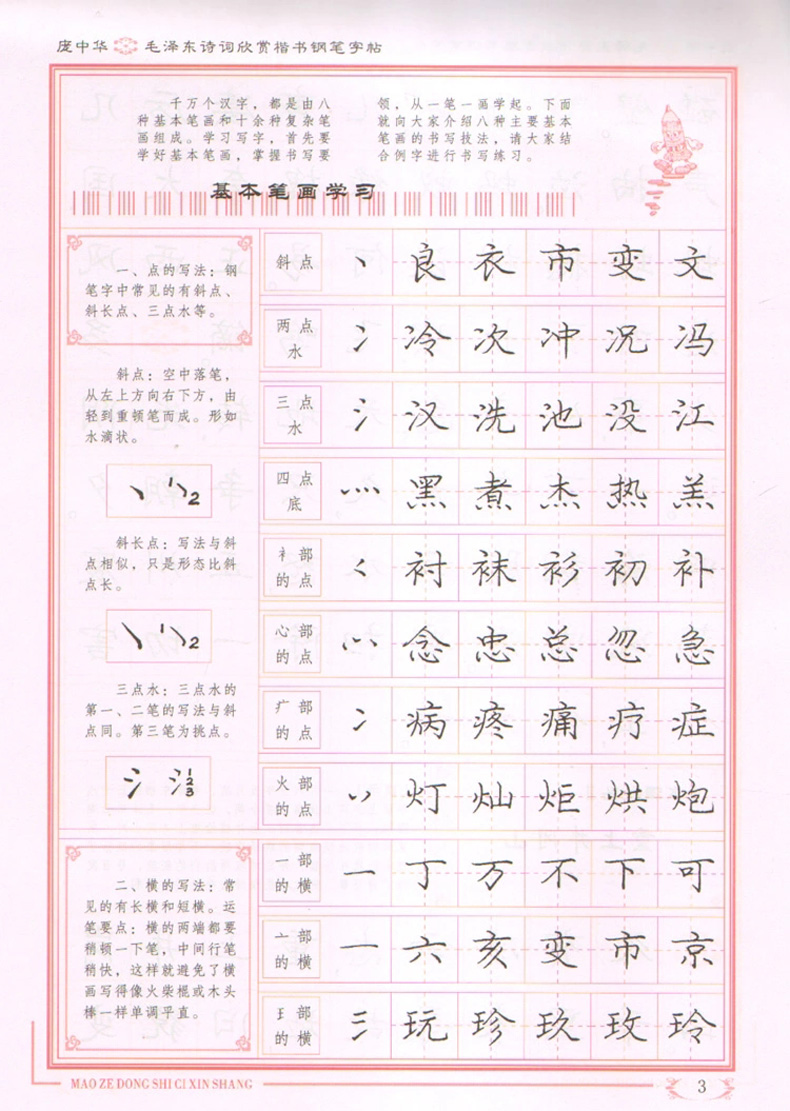 庞中华 毛泽东诗词欣赏楷书钢笔字帖
千万个汉字，都是由八
种基本笔画和十余种复杂笔
画组成。学习写字，首先要
学好基本笔画，掌握书写要
领，从一笔一画学起。下面
就向大家介绍八种主要基本
笔画的书写技法，请大家结
合例字进行书写练习。
基本笔画学习
一、点的写法：钢
笔字中常见的有斜点、
斜长点、三点水等。
斜点：空中落笔，
从左上方向右下方，由
轻到重顿笔而成。形如
水滴状。
丶 1 2
斜长点：写法与斜
点相似，只是形态比斜
点长。
1 2
三点水：三点水的
第一、二笔的写法与斜
点同。第三笔为挑点。
氵 氵 1 2 3
二、横的写法：常
见的有长横和短横。运
笔要点：横的两端都要
稍顿一下笔，中间行笔
稍快，这样就避免了横
画写得像火柴棍或木头
棒一样单调平直。
斜点 丶 良 衣 市 变 文
两点
水 冫 冷 次 冲 况 冯
三点
水 氵 汉 洗 池 没 江
四点
底 灬 黑 煮 杰 热 羔
衤部
的点 衬 袜 衫 初 补
心部
的点 念 忠 总 忽 急
疒部
的点 冫 病 疼 痛 疗 症
火部
的点 灯 灿 炬 烘 炮
一部
的横 一 丁 万 不 下 可
亠部
的横 一 六 亥 变 市 京
王部
的横 三 玩 珍 玖 玫 玲
MAO ZE DONG SHI CI XIN SHANG
3